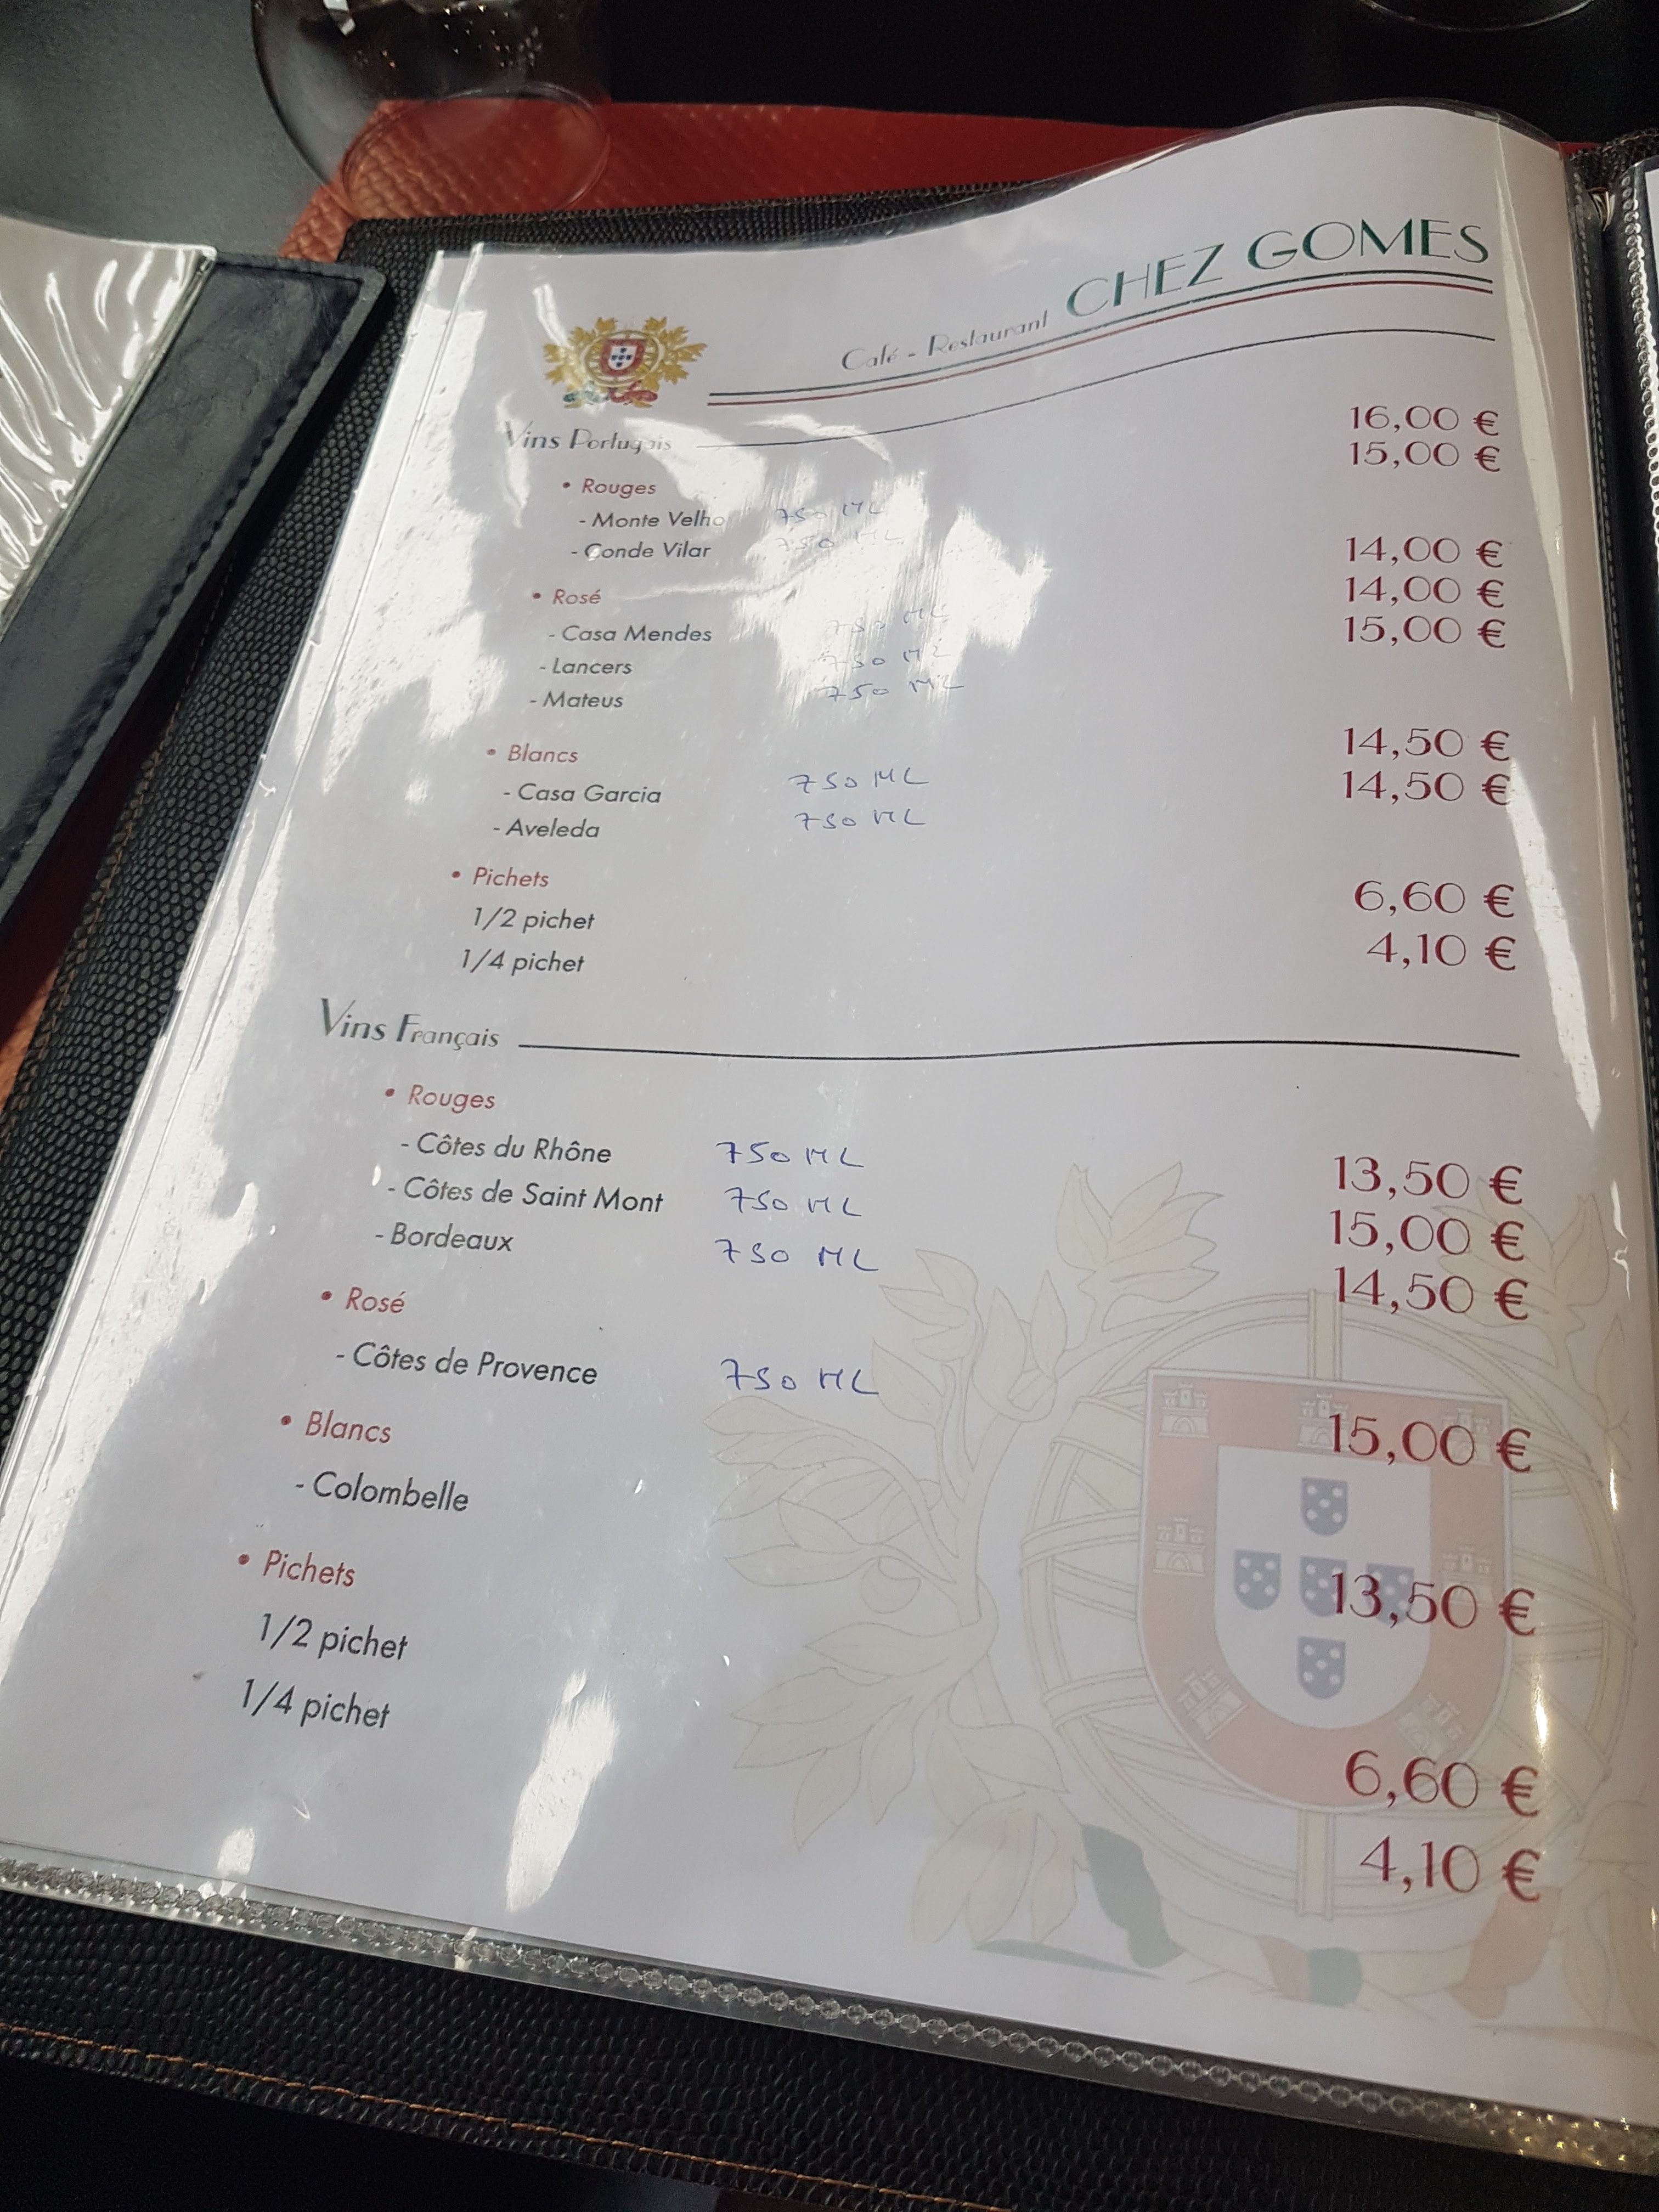 Café - Restaurant CHEZ GOMES
Vins Portugais
• Rouges
- Monte Velho 750 ML 16,00 €
- Conde Vilar 750 ML 15,00 €
• Rosé
- Casa Mendes 750 ML 14,00 €
- Lancers 750 ML 14,00 €
- Mateus 750 ML 15,00 €
• Blancs
- Casa Garcia 750 ML 14,50 €
- Aveleda 750 ML 14,50 €
• Pichets
1/2 pichet 6,60 €
1/4 pichet 4,10 €
Vins Français
• Rouges
- Côtes du Rhône 750 ML 13,50 €
- Côtes de Saint Mont 750 ML 15,00 €
- Bordeaux 750 ML 14,50 €
• Rosé
- Côtes de Provence 750 ML 15,00 €
• Blancs
- Colombelle 13,50 €
• Pichets
1/2 pichet 6,60 €
1/4 pichet 4,10 €